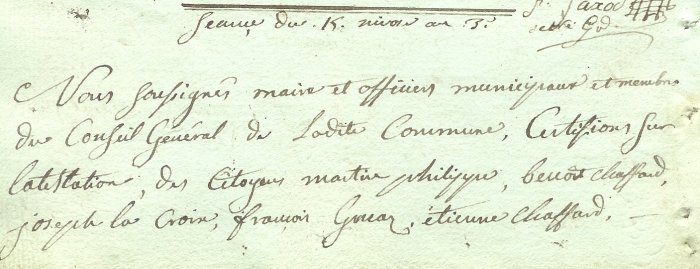 Seance du 15. nivose an 3.e
Nous soussignés maire et officiers municipaux et membres
du Conseil Général de Ladite Commune, Certifions sur
latestation, des Citoyens martin philippe, benoit chaffard,
joseph la Croix, francois etienne chaffard,